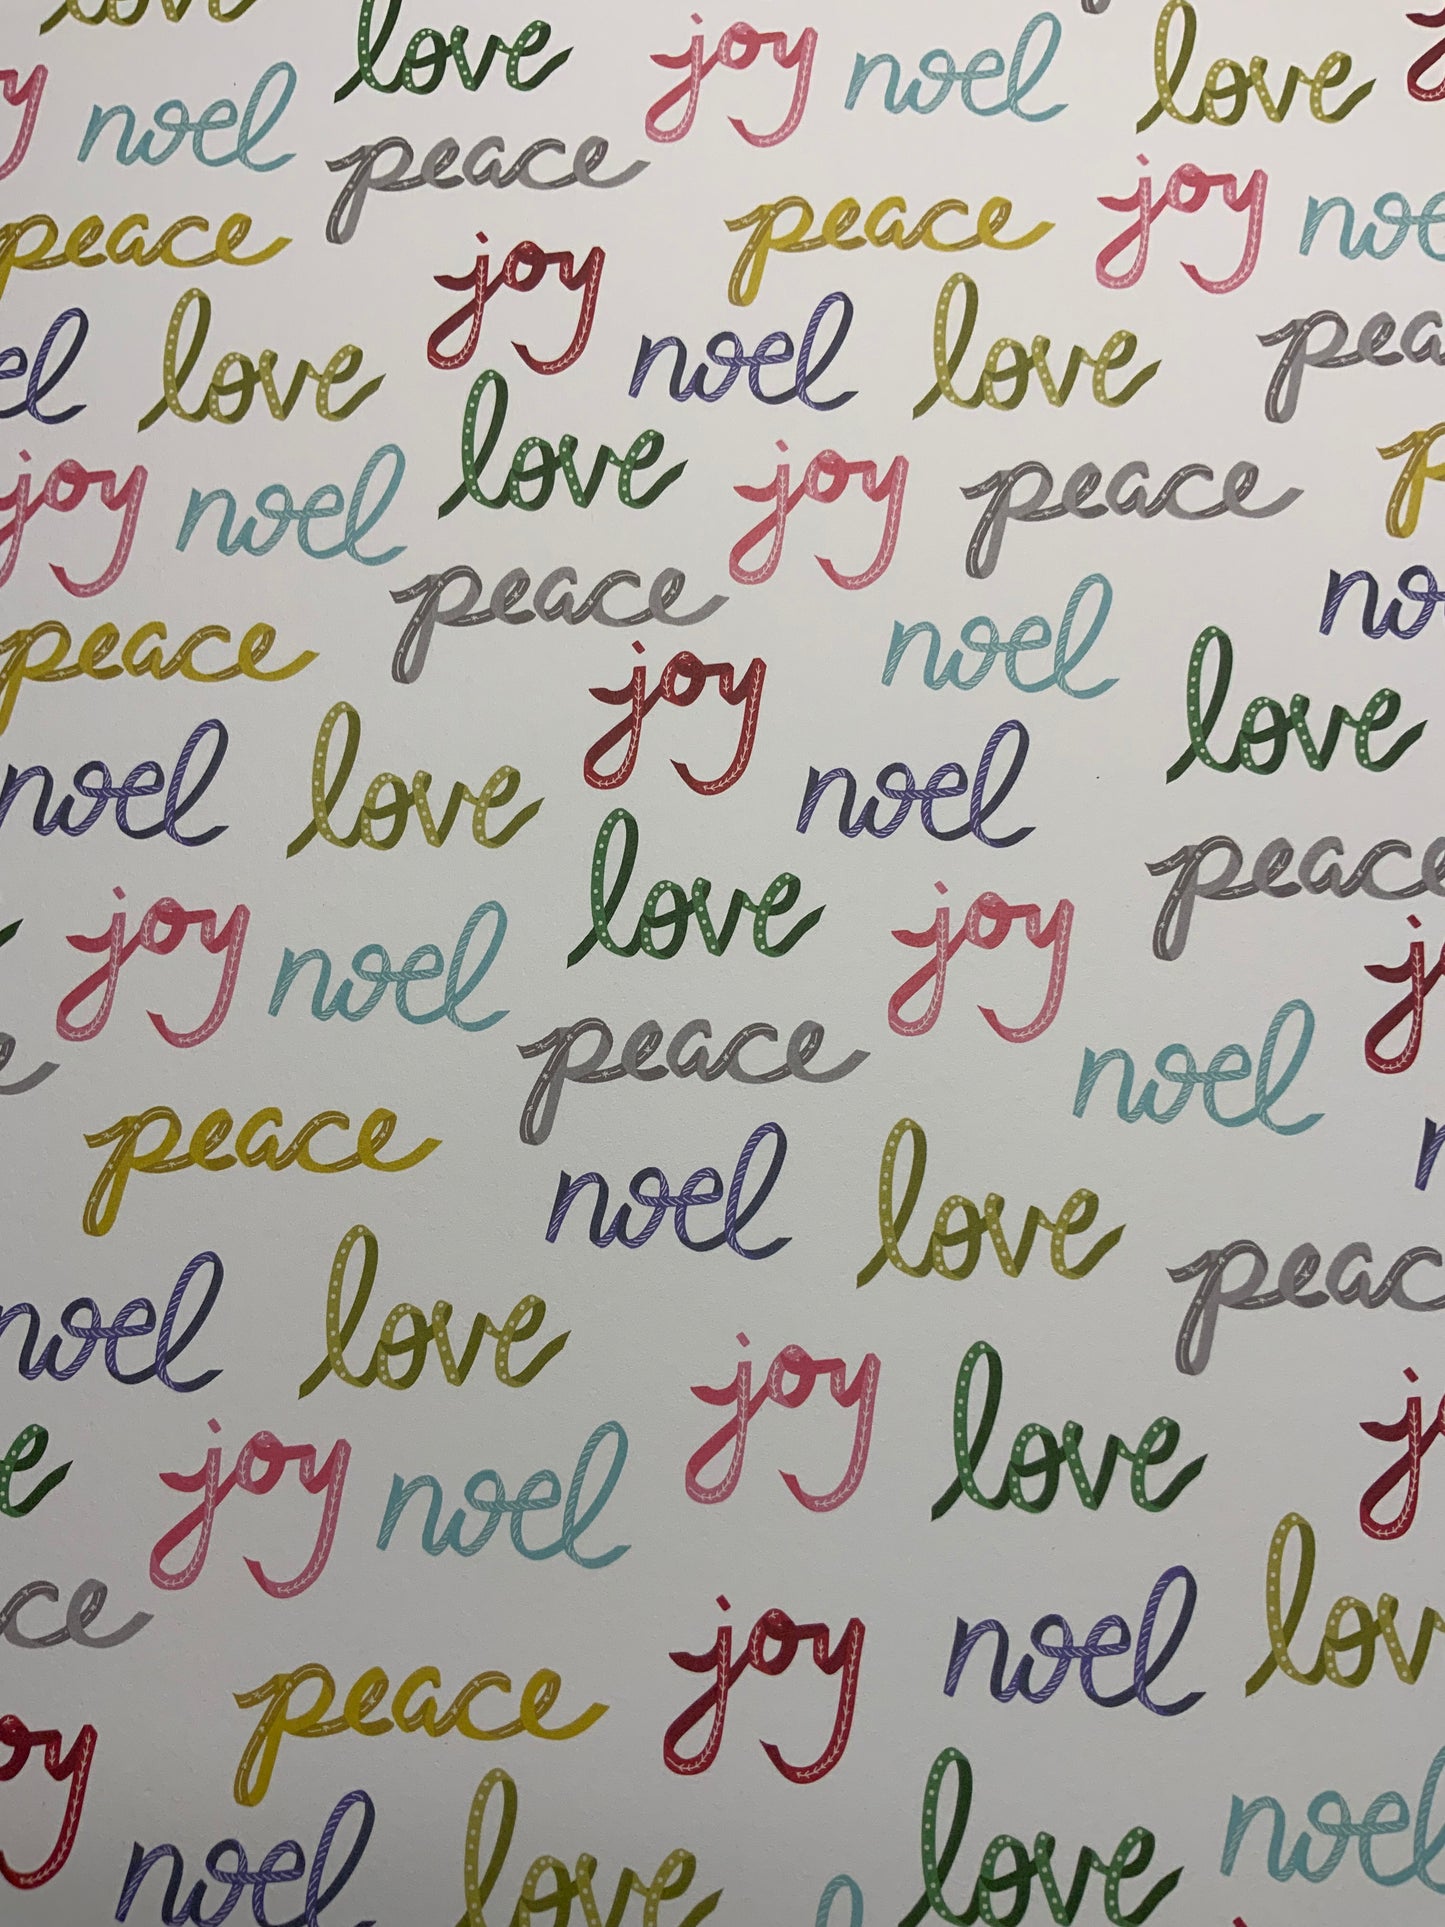 love
love joy noel love
joy noel
peace joy noel
peace peace
joy
noel love noel love peace
joy noel love joy peace
peace noel
peace joy love
noel love noel
joy noel love joy peace
peace noel
peace noel love
noel love peace
joy love joy
love joy noel
peace joy noel love
peace
joy noel love love noel